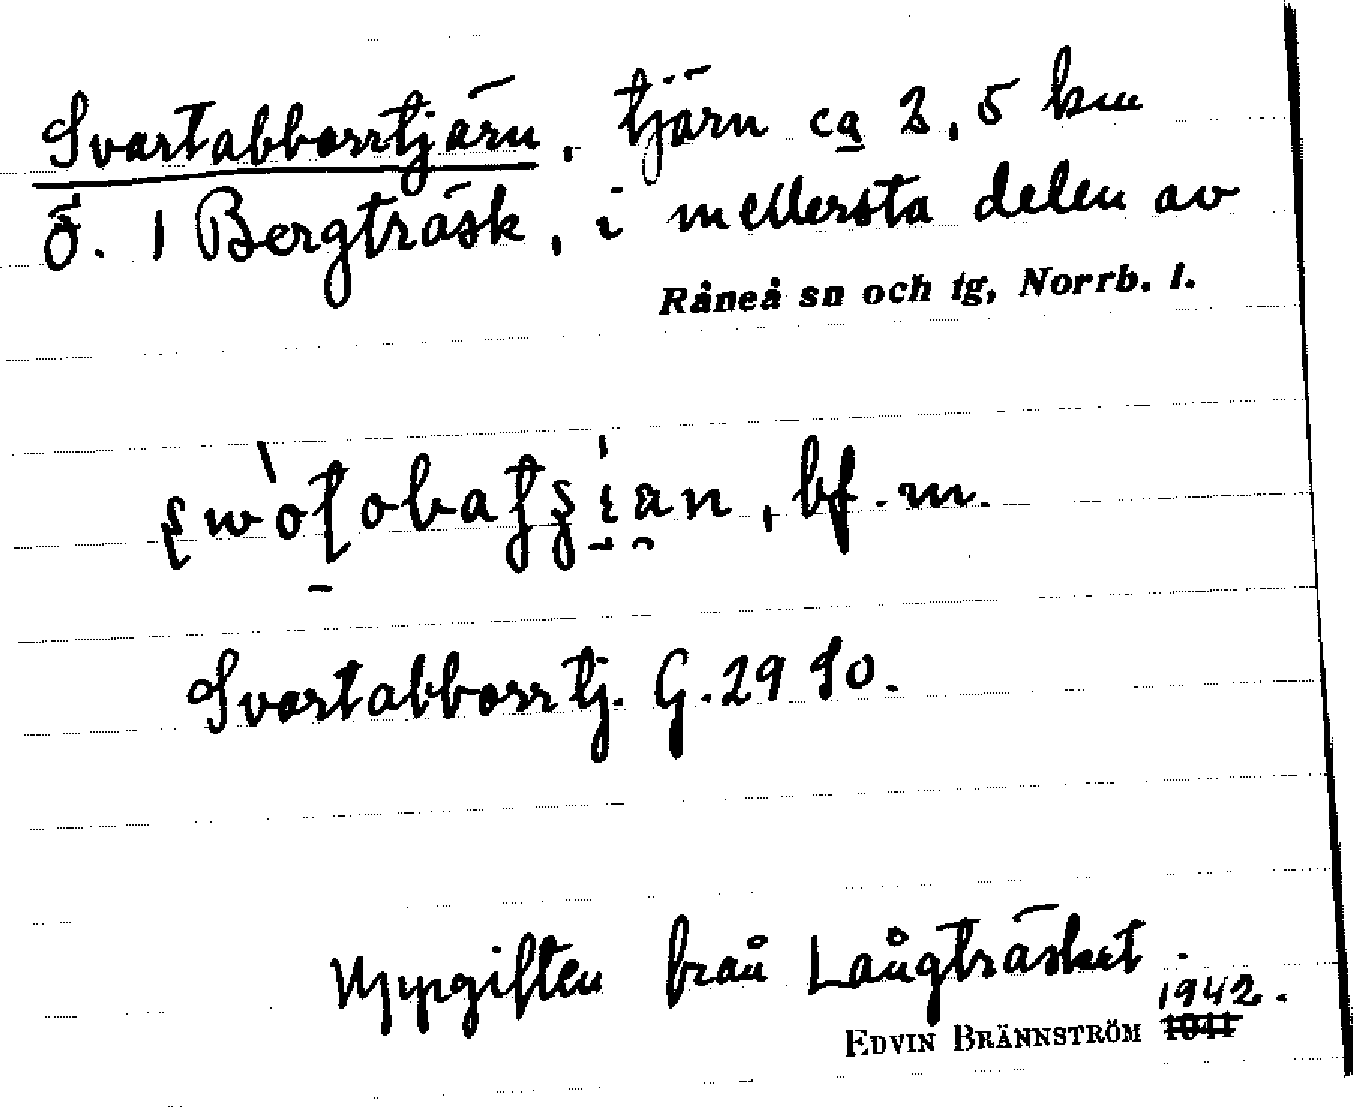 Svartabborrtjärn, tjärn ca 2,5 km
Ö. 1 Bergträsk, i mellersta delen av
Råneå sn och tg, Norrb. l.
bf. m.
Svartabborrtj. G. 29 SO.
Uppgiften från Långträsket.
1942.
EDVIN BRÄNNSTRÖM 1941